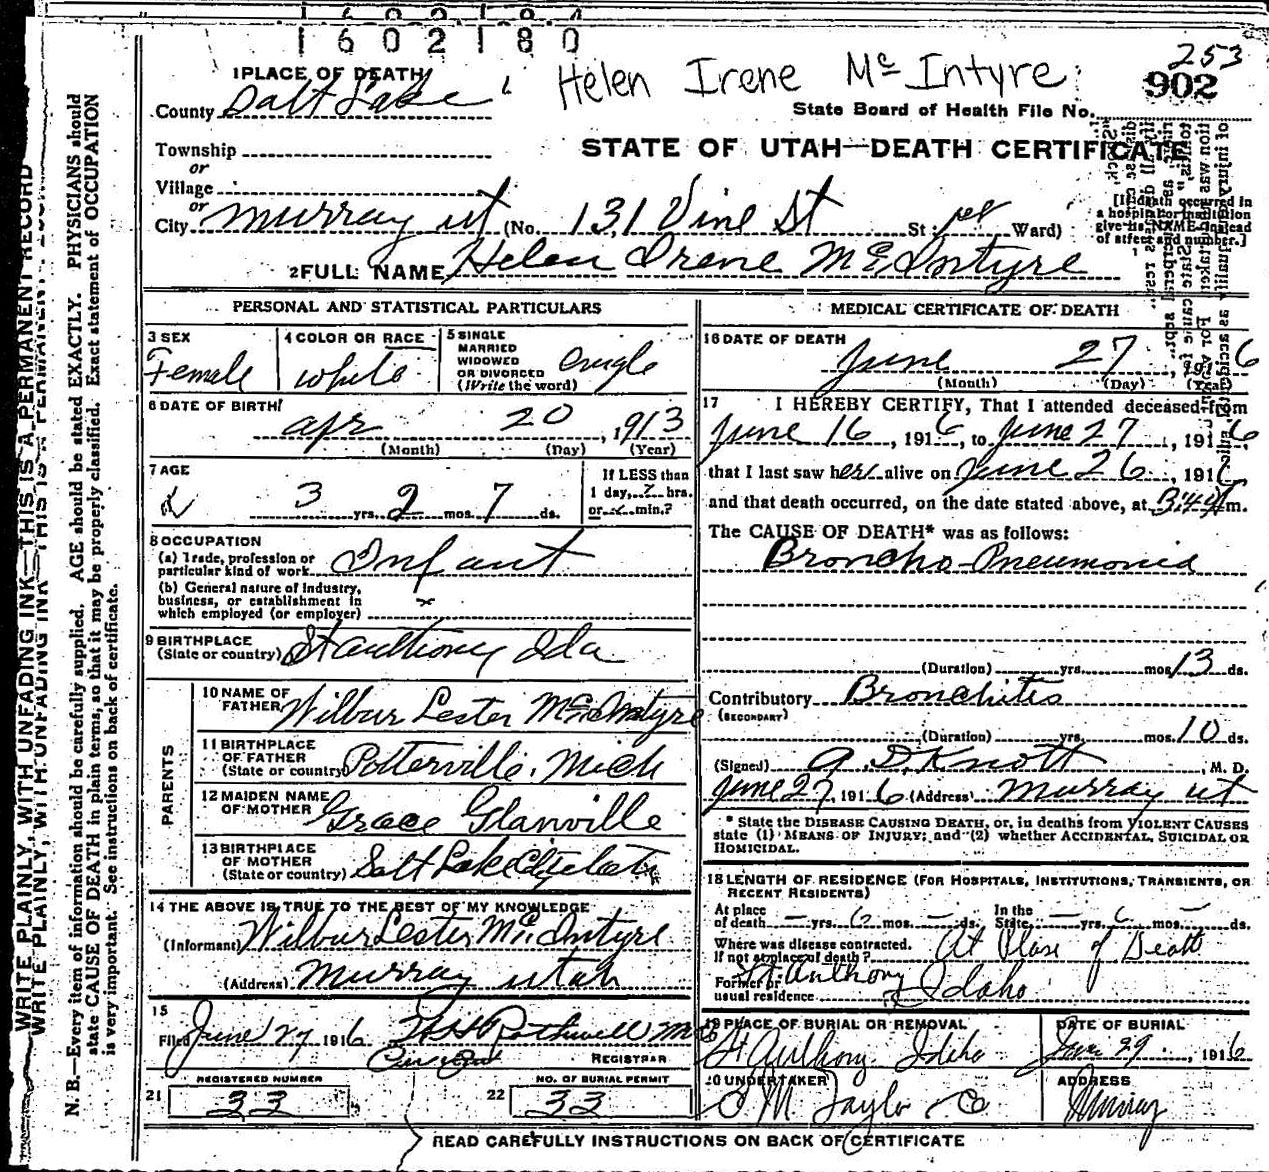 1602180
253
Helen Irene Mc Intyre
902
1 PLACE OF DEATH
County Salt Lake
State Board of Health File No.
Township
STATE OF UTAH—DEATH CERTIFICATE
or
Village
or
City Murray ut (No. 131 Vine St St; 1st Ward)
[If death occurred in a hospital or institution give its NAME instead of street and number.]
2 FULL NAME Helen Irene McIntyre
PERSONAL AND STATISTICAL PARTICULARS
3 SEX
Female
4 COLOR OR RACE
white
5 SINGLE
MARRIED
WIDOWED
OR DIVORCED
(Write the word)
Single
6 DATE OF BIRTH
apr 20, 1913
(Month) (Day) (Year)
7 AGE
3 yrs. 2 mos. 7 ds.
If LESS than
1 day, hrs.
or min.?
8 OCCUPATION
(a) Trade, profession or
particular kind of work Infant
(b) General nature of industry,
business, or establishment in
which employed (or employer)
9 BIRTHPLACE
(State or country) St anthony Ida
PARENTS
10 NAME OF
FATHER Wilbur Lester McIntyre
11 BIRTHPLACE
OF FATHER
(State or country) Potterville. Mich
12 MAIDEN NAME
OF MOTHER Grace Glanville
13 BIRTHPLACE
OF MOTHER
(State or country) Salt Lake City utah
14 THE ABOVE IS TRUE TO THE BEST OF MY KNOWLEDGE
(Informant) Wilbur Lester McIntyre
(Address) Murray utah
15
Filed June 27 1916 Rothwell
REGISTRAR
REGISTERED NUMBER
21 33
NO. OF BURIAL PERMIT
22 33
MEDICAL CERTIFICATE OF DEATH
16 DATE OF DEATH
June 27, 1916
(Month) (Day) (Year)
17 I HEREBY CERTIFY, That I attended deceased from
June 16, 1916, to June 27, 1916
that I last saw her alive on June 26, 191
and that death occurred, on the date stated above, at m.
The CAUSE OF DEATH* was as follows:
Broncho-Pneumonia
(Duration) yrs. mos. 13 ds.
Contributory Bronchites
(SECONDARY)
(Duration) yrs. mos. 10 ds.
(Signed) A. D. Knott, M. D.
June 27, 1916 (Address) Murray ut
* State the DISEASE CAUSING DEATH, or, in deaths from VIOLENT CAUSES
state (1) MEANS OF INJURY; and (2) whether ACCIDENTAL, SUICIDAL OR
HOMICIDAL.
18 LENGTH OF RESIDENCE (FOR HOSPITALS, INSTITUTIONS, TRANSIENTS, OR
RECENT RESIDENTS)
At place
of death — yrs. 6 mos. — ds. In the
State — yrs. 6 mos. — ds.
Where was disease contracted.
If not at place of death? At Plase of Death
Former or
usual residence St. Anthony Idaho
19 PLACE OF BURIAL OR REMOVAL
St Anthony Idaho
DATE OF BURIAL
June 29, 1916
20 UNDERTAKER
S M Taylor & Co
ADDRESS
Murray
READ CAREFULLY INSTRUCTIONS ON BACK OF CERTIFICATE
WRITE PLAINLY, WITH UNFADING INK—THIS IS A PERMANENT RECORD
N. B.—Every item of information should be carefully supplied. AGE should be stated EXACTLY. PHYSICIANS should
state CAUSE OF DEATH in plain terms, so that it may be properly classified. Exact statement of OCCUPATION
is very important. See instructions on back of certificate.